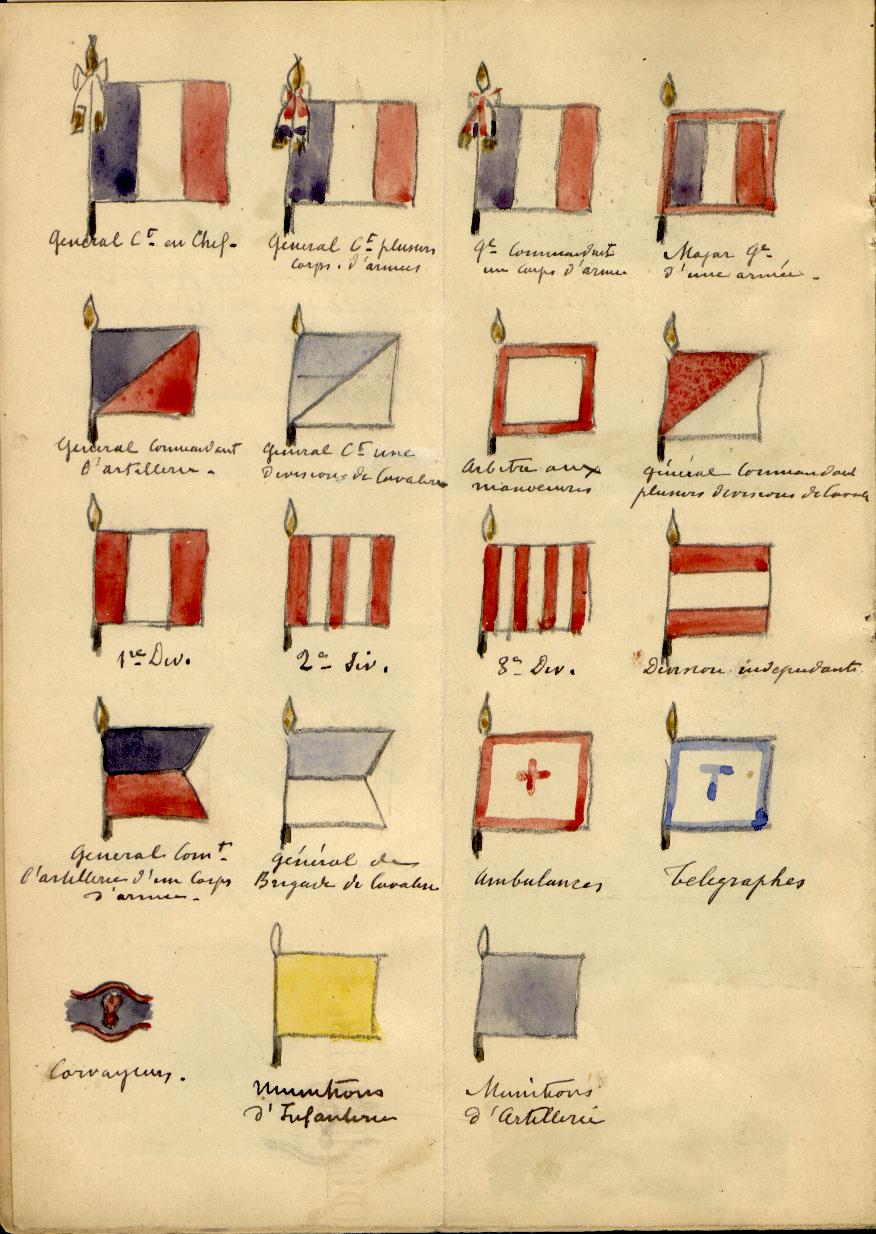 General Ct en Chef.
General Ct plusieurs
corps. d'armées
Gal Commandant
un corps d'armée
Major Gal
d'une armée.
General Commandant
D'artillerie.
General Ct une
Divisions de Cavalerie
Arbitre aux
manoeuvres
général Commandant
plusieurs divisions de Cavale
1re Div.
2e Div.
3e Div.
Division independante
General Comt
D'artillerie d'un Corps
d'armée.
général de
Brigade de Cavalerie
Ambulances
T
Telegraphes
Convoyeurs.
Munitions
d'Infanterie
Munitions
d'Artillerie